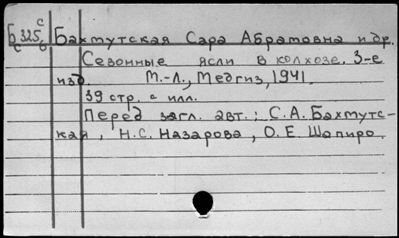 Б 325 с Бахмутская Сара Абрамовна и др.
Сезонные ясли в колхозе. 3-е
изд. М.-Л., Медгиз, 1941.
39 стр. с илл.
Перед загл. авт.: С.А. Бахмутс-
кая, Н.С. Назарова, О.Е. Шапиро.